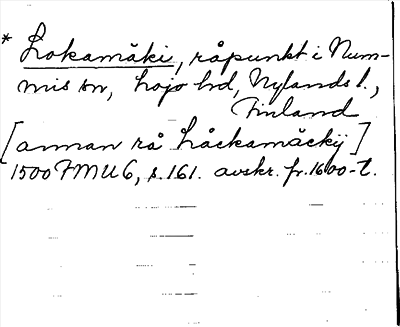 * Lokamäki, råpunkt i Num-
mis sn, Lojo hd, Nylands l.,
Finland
[annan rå Låckamäckÿ]
1500 FMU 6, s. 161. avskr. fr. 1600-t.